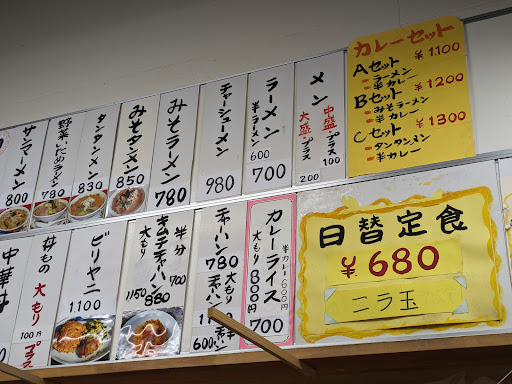 カレーセット
Aセット ¥1.100
ラーメン
半カレー
Bセット ¥1200
みそラーメン
半カレー
Cセット ¥1300
タンタンメン
半カレー
メン
中盛プラス100
大盛プラス200
ラーメン
半ラーメン600
700
チャーシューメン
980
みそラーメン
780
みそタンメン
850
タンタンメン
830
野菜いためラーメン
780
サンラーメン
800
日替定食
¥680
ニラ玉
カレーライス
半カレー600円
大もり800円
700
チャーハン
780
大もり
半チャーハン
600
キムチチャーハン
半分700
大もり1150
880
ビリヤニ
1.100
丼もの大もり
100円プラス
中華丼